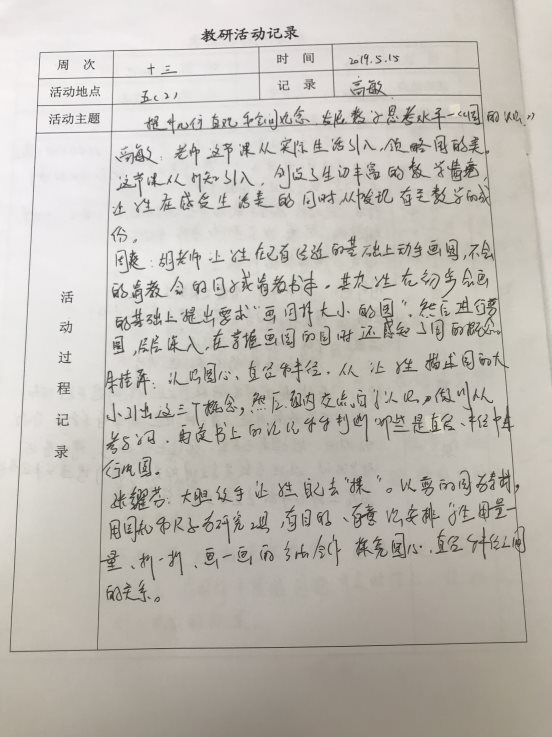 教研活动记录
周次 十三 时间 2019.5.15
活动地点 五(2) 记录 高敏
活动主题 提升几何直观和空间观念,发展数学思考水平—《圆的认识》
活动过程记录
高敏:老师这节课从实际生活引入,领略圆的美。
这节课从引入,创设了生动丰富的数学情境,
让学生在感受生活美的同时从中发现有关数学的成
份。
周爽:胡老师让学生在已有经验的基础上动手画圆,不会
的请教会的同学或请教书本。其次学生在初步会画
的基础上提出要求"画同样大小的圆",然后进行
圆,层层深入,在掌握画圆的同时还感知了圆的概念。
朱桂萍:认识圆心、直径和半径,从让学生描述圆的大
小引出这三个概念,然后
书上的判断哪些是直径、半径
圆。
张耀芬:大胆放手让学生自己去"探"。以剪的圆为素材,
用圆规和尺子为研究工具,有目的、有意识安排学生用量一
量、折一折、画一画的合作探究圆心、直径半径之间
的关系。